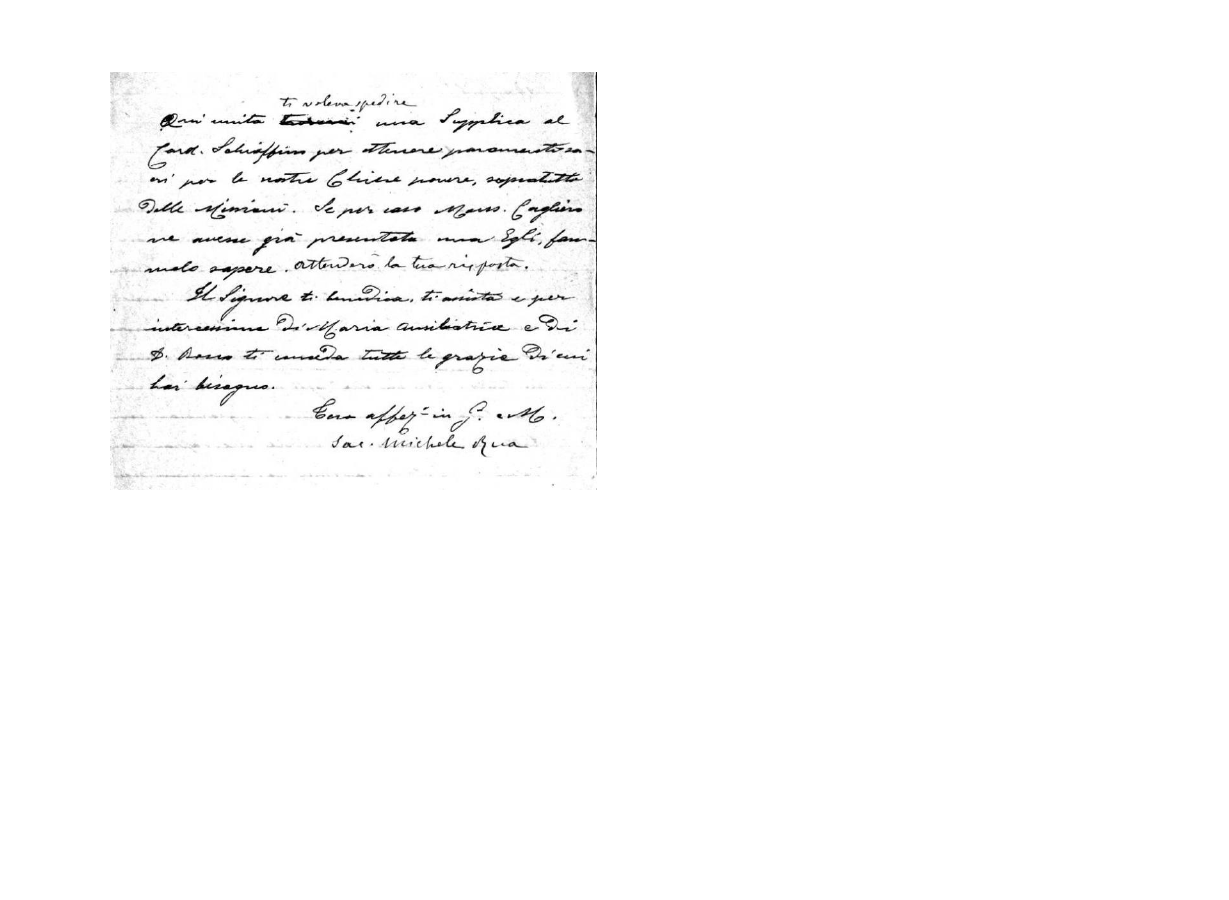 ti voleva spedire
Qui unita troverai una Supplica al
Card. Schiaffino per ottenere paramenti sa-
cri per le nostre Chiese povere, sopratutto
delle Missioni. Se per caso Mons. Cagliero
ne avesse già presentata una Egli, fam-
melo sapere. Attenderò la tua risposta.
Il Signore ti benedica, ti assista e per
intercessione di Maria Ausiliatrice e di
D. Bosco ti conceda tutte le grazie di cui
hai bisogno.
Tuo affez.º in G. e M.
Sac. Michele Rua